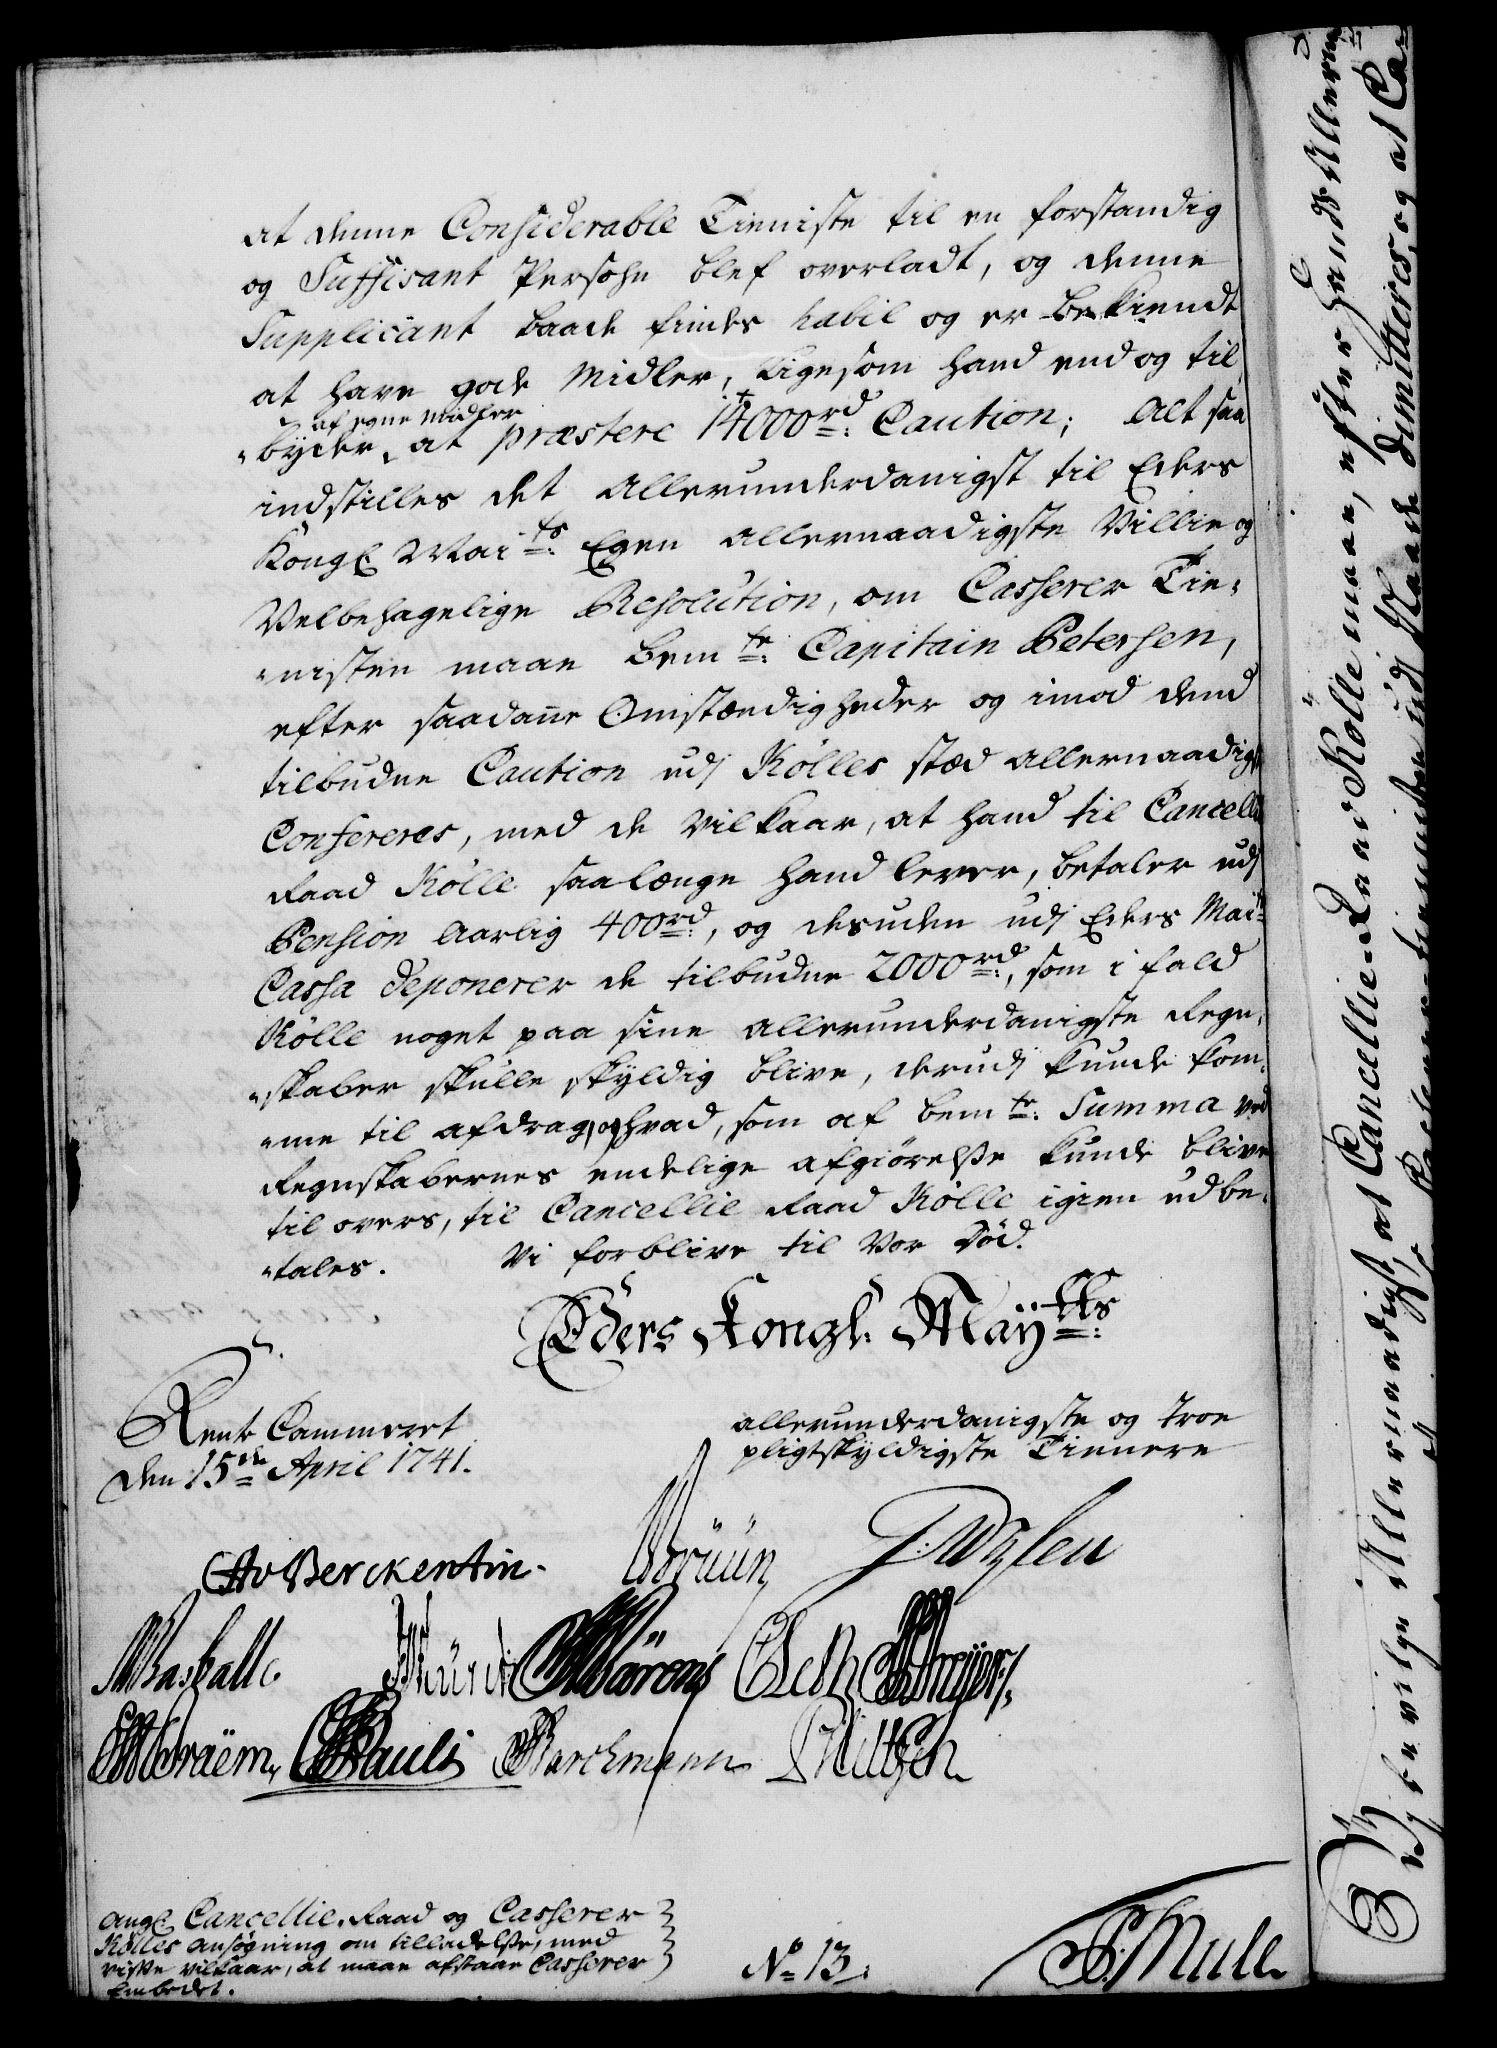 at denne Considerable Tieniste til en forstandig
og Suffisant Persohn blef overladt, og denne
Supplicant baade findes habil og er bekiendt
at have gode Midler, ligesom hand end og til
af egne midler
byder at præstere 14000 rd: Caution; Alt saa
indstilles det allerunderdanigst til Eders
Kongl Mai ts: Egen allernaadigste Villie og
Velbehagelige Resolution, om Casserer Tie-
nisten maae bem te: Capitain Petersen,
efter saadane Omstændigheder og imod dend
tilbudne Caution udj Kölles stæd allernaadigst
Confereres, med de Vilkaar, at hand til Cancellie
Raad Kölle saalænge hand lever, betaler udj
Pension Aarlig 400 rd:, og desuden udj Eders Mai ts
Cassa deponerer de tilbudne 2000 rd:, som i fald
Kölle noget paa sine allerunderdanigste Regn-
skaber skulle skyldig blive, derudj kunde kom-
me til afdrag, og hvad, som af bem te: Summa ved
Regnskabernes endelige afgiörelsse kunde blive
til overs, til Cancellie Raad Kölle igien udbe-
tales. Vi forblive til Vor Död.
Eders Kongl: Maÿ tts:
Rente Cammeret
den 15 de April 1741.
allerunderdanigste og troe
pligtskyldigste Tienere
CAv Berckentin.
Brüün
Braëm
Pauli
Barchmann
angl Cancellie-Raad og Casserer
Kölles ansøgning om tilladelsse, med
visse vilkaar, at maae afstaae Casserer
Embedet.
No 13.
Mule
Vj bevilge Allernaadigst, at Cancellie-Raad Kölle maae, efter hands Allerun
dimitteres, og at Ca-